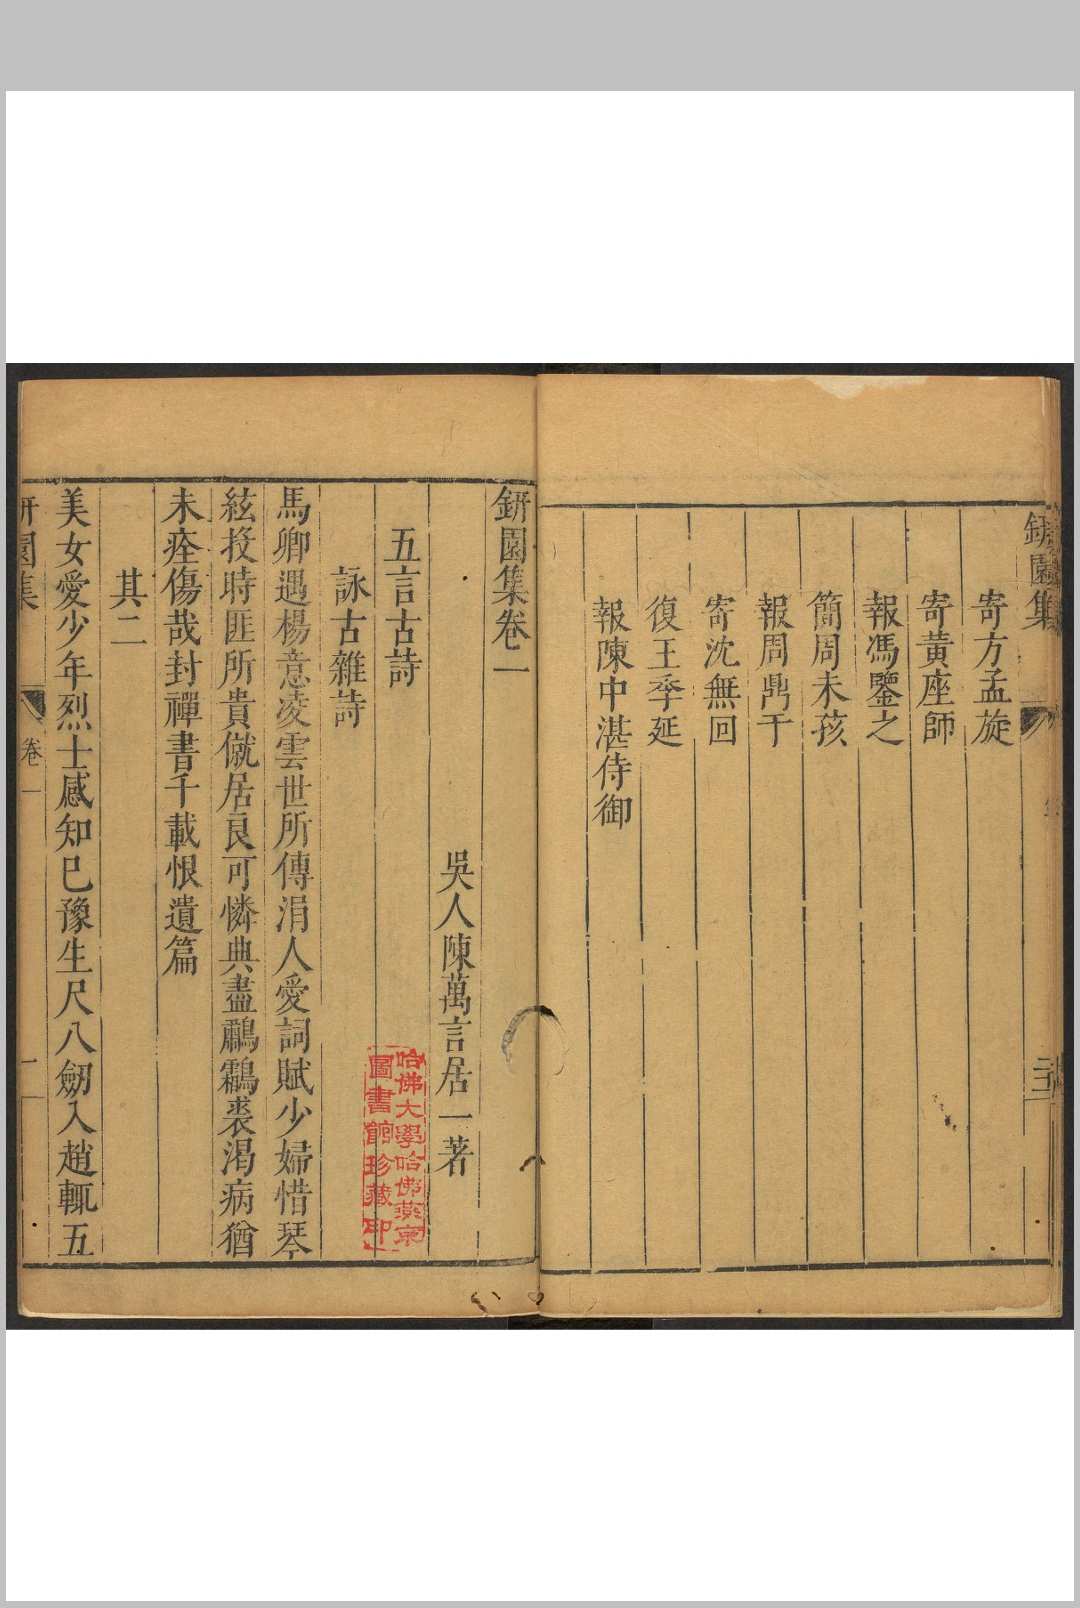 鈃園集
寄方孟旋
寄黃座師
報馮鑒之
簡周未孩
報周鼎于
寄沈無回
復王季延
報陳中湛侍御
鈃園集卷一
吳人陳萬言居一著
五言古詩
詠古雜詩
馬卿遇楊意凌雲世所傳涓人愛詞賦少婦惜琴
絃投時匪所貴僦居良可憐典盡鷫鸘裘渴病猶
未痊傷哉封禪書千載恨遺篇
其二
美女愛少年烈士感知巳豫生尺八劒入趙輒五
園集
卷一
一
哈佛大學哈佛燕京
圖書館珍藏印